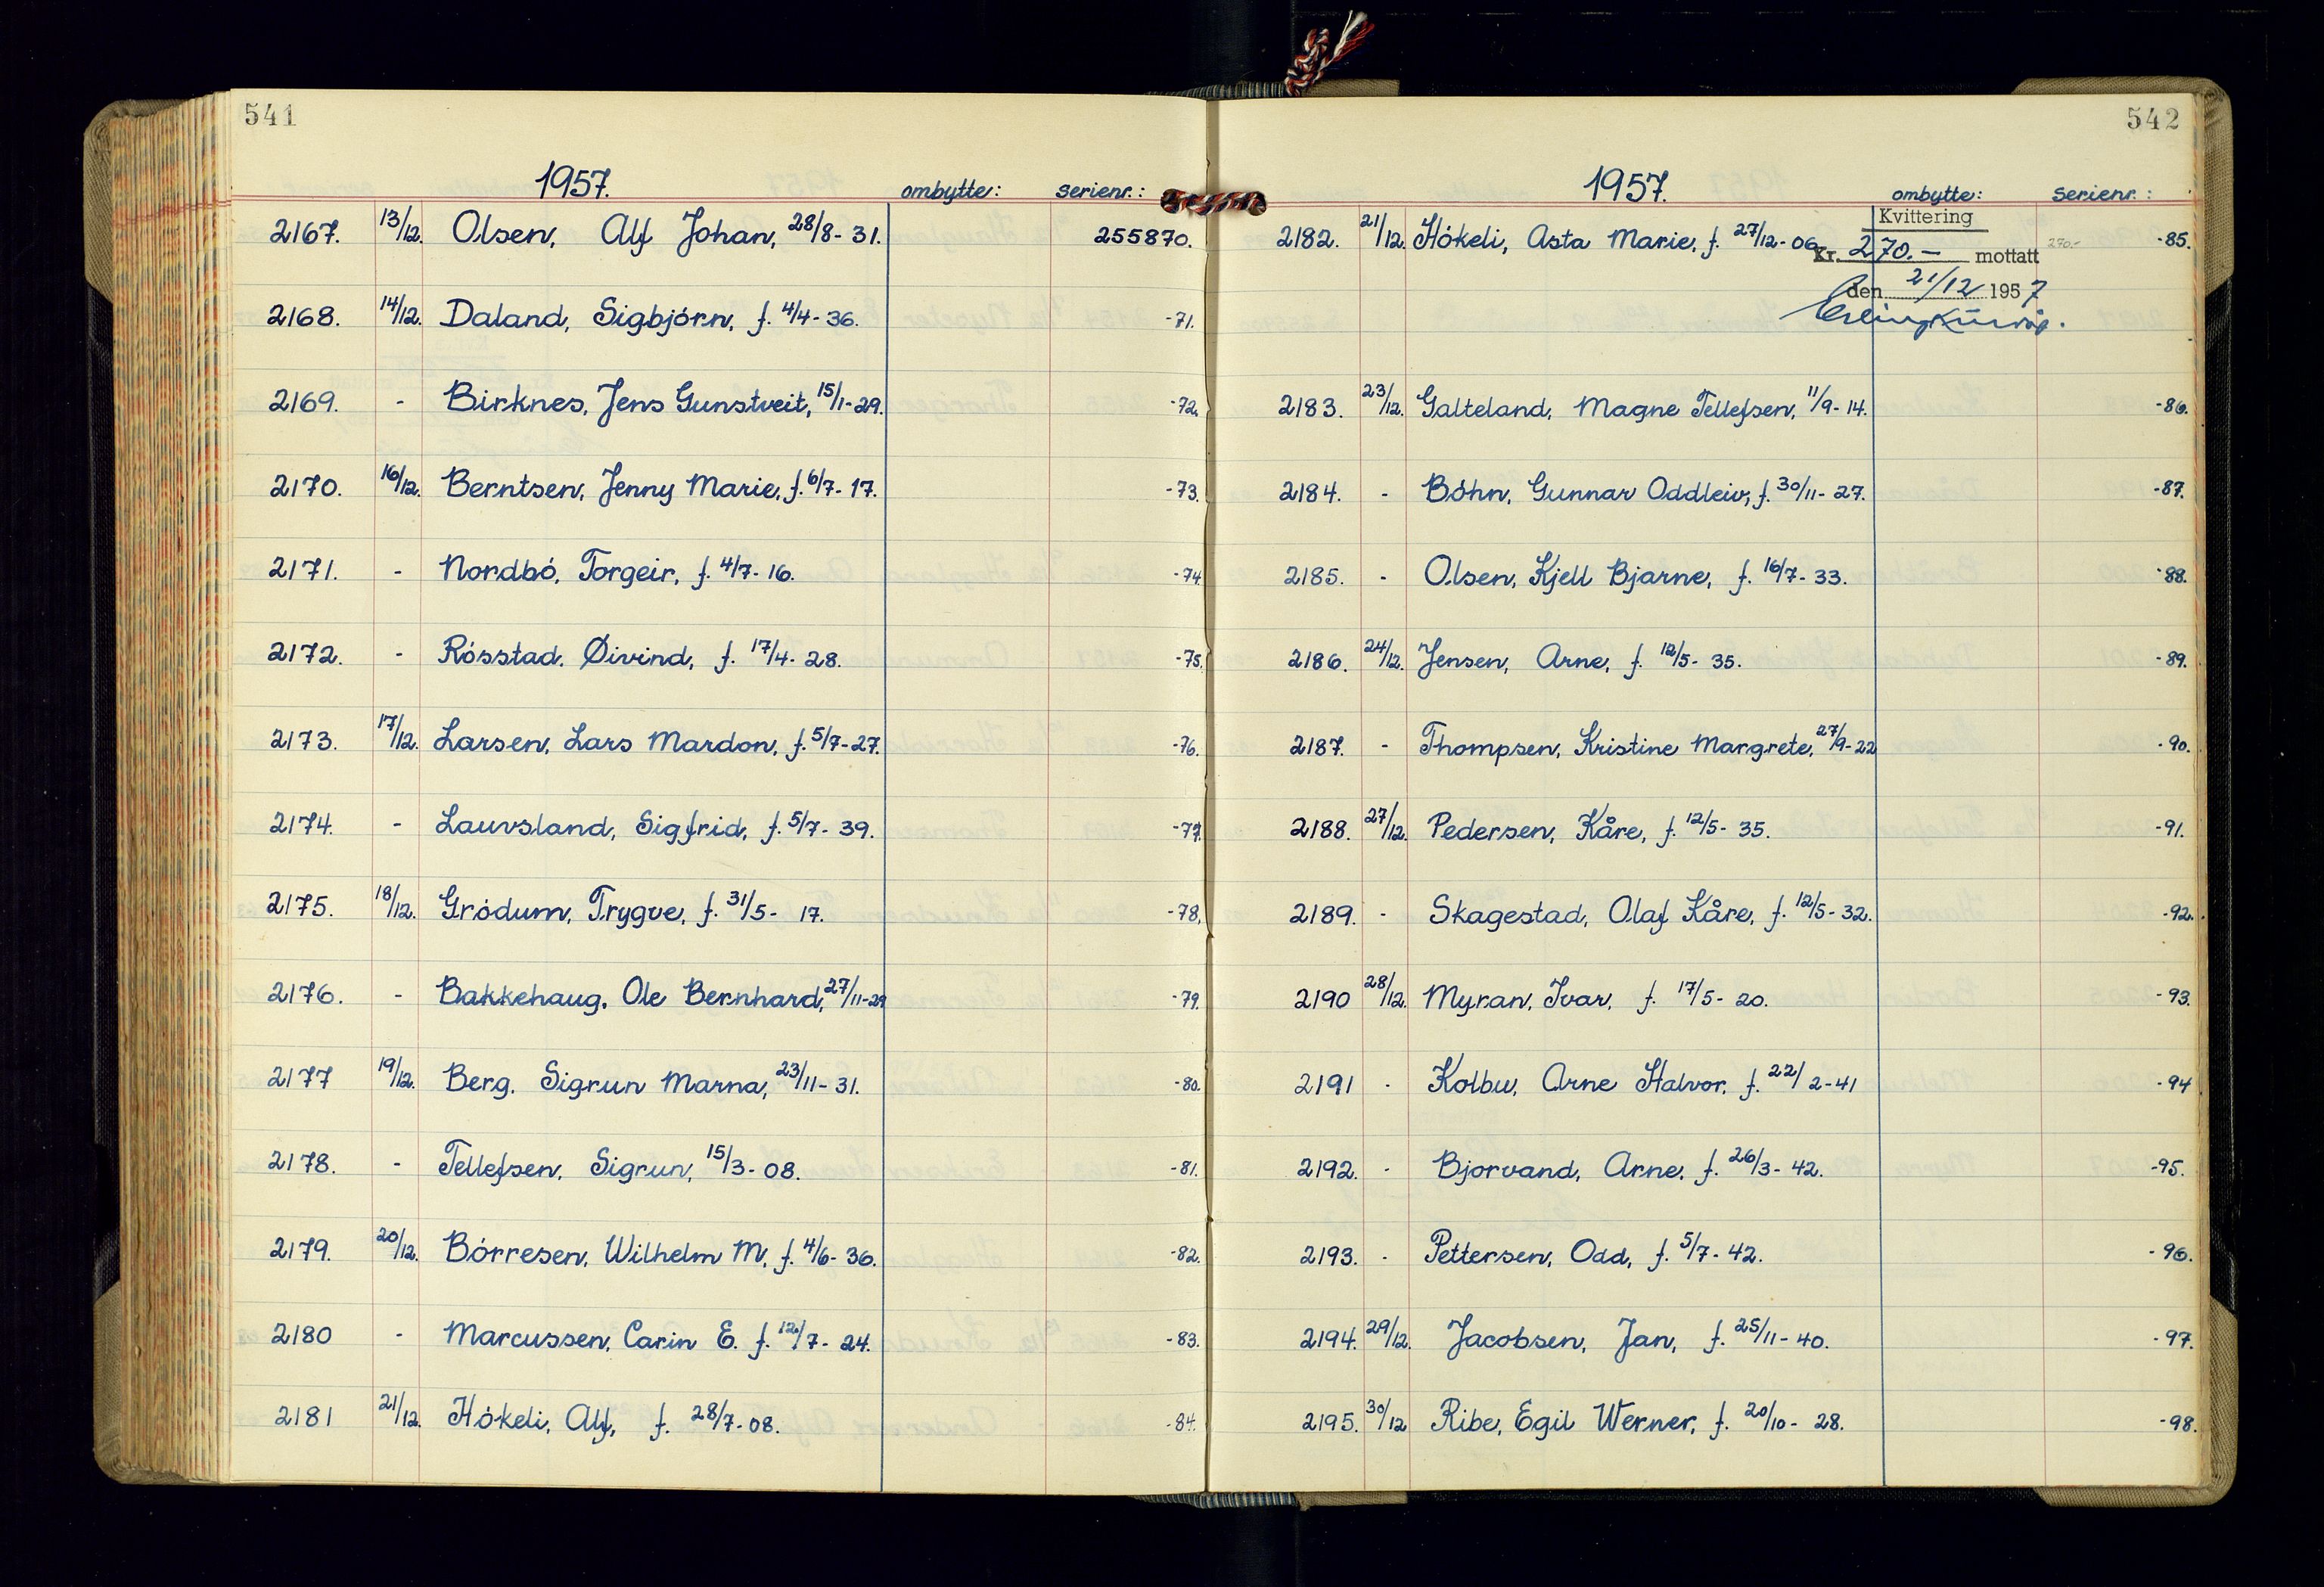 541
1957.
ombytte: serienr.:
2167. 13/12. Olsen, Alf Johan, 28/8-31. 255870.
2168. 14/12. Daland, Sigbjórn, f. 4/4-36. -71.
2169. - Birknes, Jens Gunstveit, 15/1-29. -72.
2170. 16/12. Berntsen, Jenny Marie, f. 6/7-17. -73.
2171. - Nordbó, Torgeir, f. 4/7-16. -74
2172. - Rósstad, Øivind, f. 17/4-28. -75.
2173. 17/12. Larsen, Lars Mardon, f. 5/7-27. -76.
2174. - Lauvsland, Sigfrid, f. 5/7-39. -77.
2175. 18/12. Gródum, Trygve, f. 31/5- 17. -78.
2176. - Bakkehaug, Ole Bernhard, 27/11-29 -79.
2177 19/12. Berg, Sigrun Marna, 23/11-31. -80.
2178. - Tellefsen, Sigrun, 15/3-08. -81.
2179. 20/12. Bórresen, Wilhelm M, f. 4/6-36. -82.
2180 - Marcussen, Carin E. f. 12/7-24. -83.
2181 21/12. Hókeli, Alf, f. 28/7-08. -84.
542
1957.
ombytte: serienr.:
2182. 21/12. Hókeli, Asta Marie, f. 27/12-06. 270.- -85.
Kvittering
Kr. 270.- mottatt
den 21/12 1957
2183. 23/12. Galteland, Magne Tellefsen, 11/9-14. -86.
2184. - Bóhn, Gunnar Oddleiv, f. 30/11-27. -87.
2185. - Olsen, Kjell Bjarne, f. 16/7-33. -88.
2186. 24/12. Jensen, Arne, f. 12/5-35. -89.
2187. - Thompsen, Kristine Margrete, 27/9-22 -90.
2188. 27/12. Pedersen, Kåre, f. 12/5-35. -91.
2189. - Skagestad, Olaf Kåre, f. 12/5-32. -92.
2190 28/12. Myran, Ivar, f. 17/5-20. -93.
2191 - Kolbu, Arne Halvor, f. 22/2-41 -94
2192. - Bjorvand, Arne, f. 26/3-42. -95.
2193. - Pettersen, Odd, f. 5/7-42. -96.
2194. 29/12. Jacobsen, Jan, f. 25/11-40. -97.
2195. 30/12 Ribe, Egil Werner, f. 20/10-28. -98.